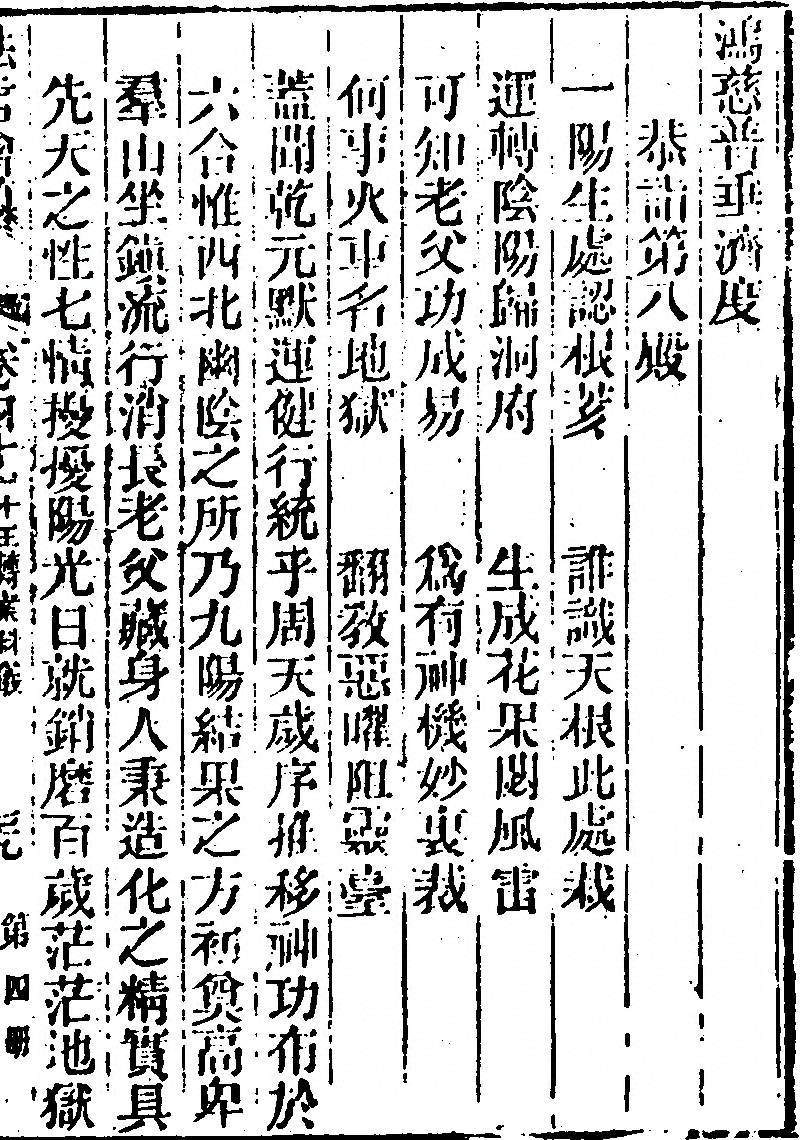 鴻慈普垂濟度
恭詣第八殿
一陽生處認根荄　誰識天根此處栽
運轉陰陽歸洞府　生成花果閗風雷
可知老父功成易　為有神機妙裏裁
何事火車名地獄　翻教惡曜阻靈臺
蓋聞乾元默運健行統乎周天歲序推移神功布於
六合惟西北幽陰之所乃九陽結果之方初奠高卑
羣山坐鎮流行消長老父藏身人秉造化之精實具
先天之性七情擾擾陽光日就銷磨百歲茫茫地獄
十王轉案科儀　第四冊